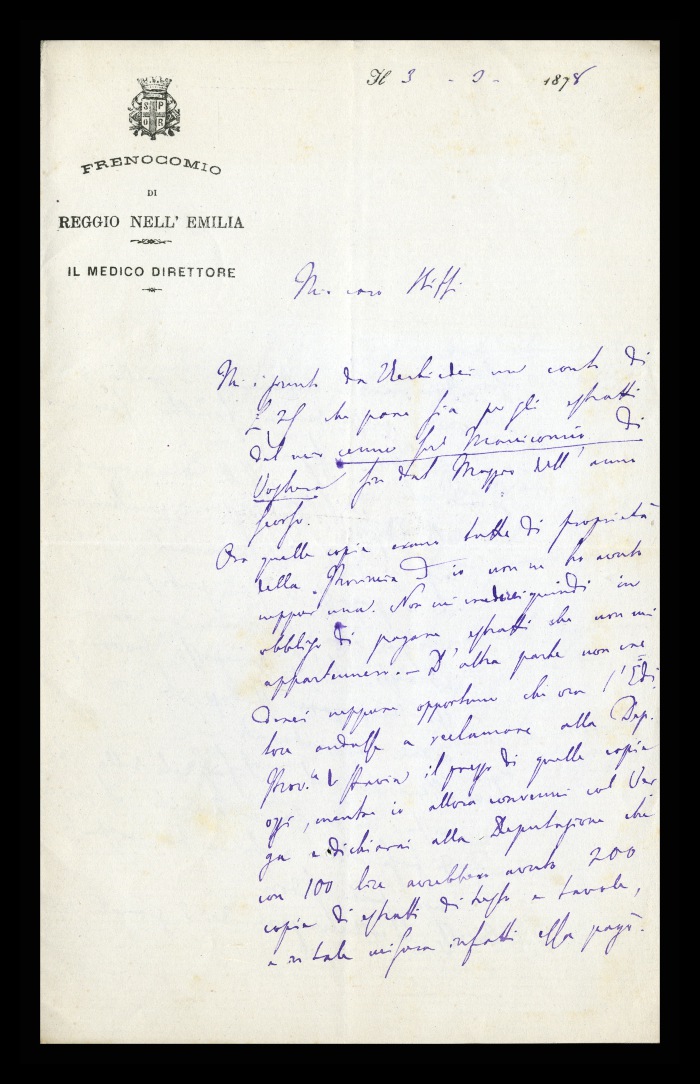 Il 3 - 9 - 1878
S P
Q R
FRENOCOMIO
DI
REGGIO NELL' EMILIA
IL MEDICO DIRETTORE
Mio caro Biffi
Mi è giunto da un conto di
che pare sia per gli estratti
dal mio cenno sul Manicomio di
Voghera fin dal Maggio dell' anno
scorso.
Ora quelle copie erano tutte di proprietà
della Provincia ed io non ne ho avuto
neppur una. Non mi crederei quindi in
obbligo di pagare estratti che non mi
appartennero. — D' altra parte non cre
derei neppure opportuno che ora l' Edi
tore andasse a reclamare alla Dep.
Prov.le di Pavia il prezzo di quelle copie
oggi, mentre io allora convenni col Ver
ga e dichiarai alla Deputazione che
con 100 lire avrebbero avuto 200
copie di estratti di testo e tavole,
e in tale misura infatti essa pagò.